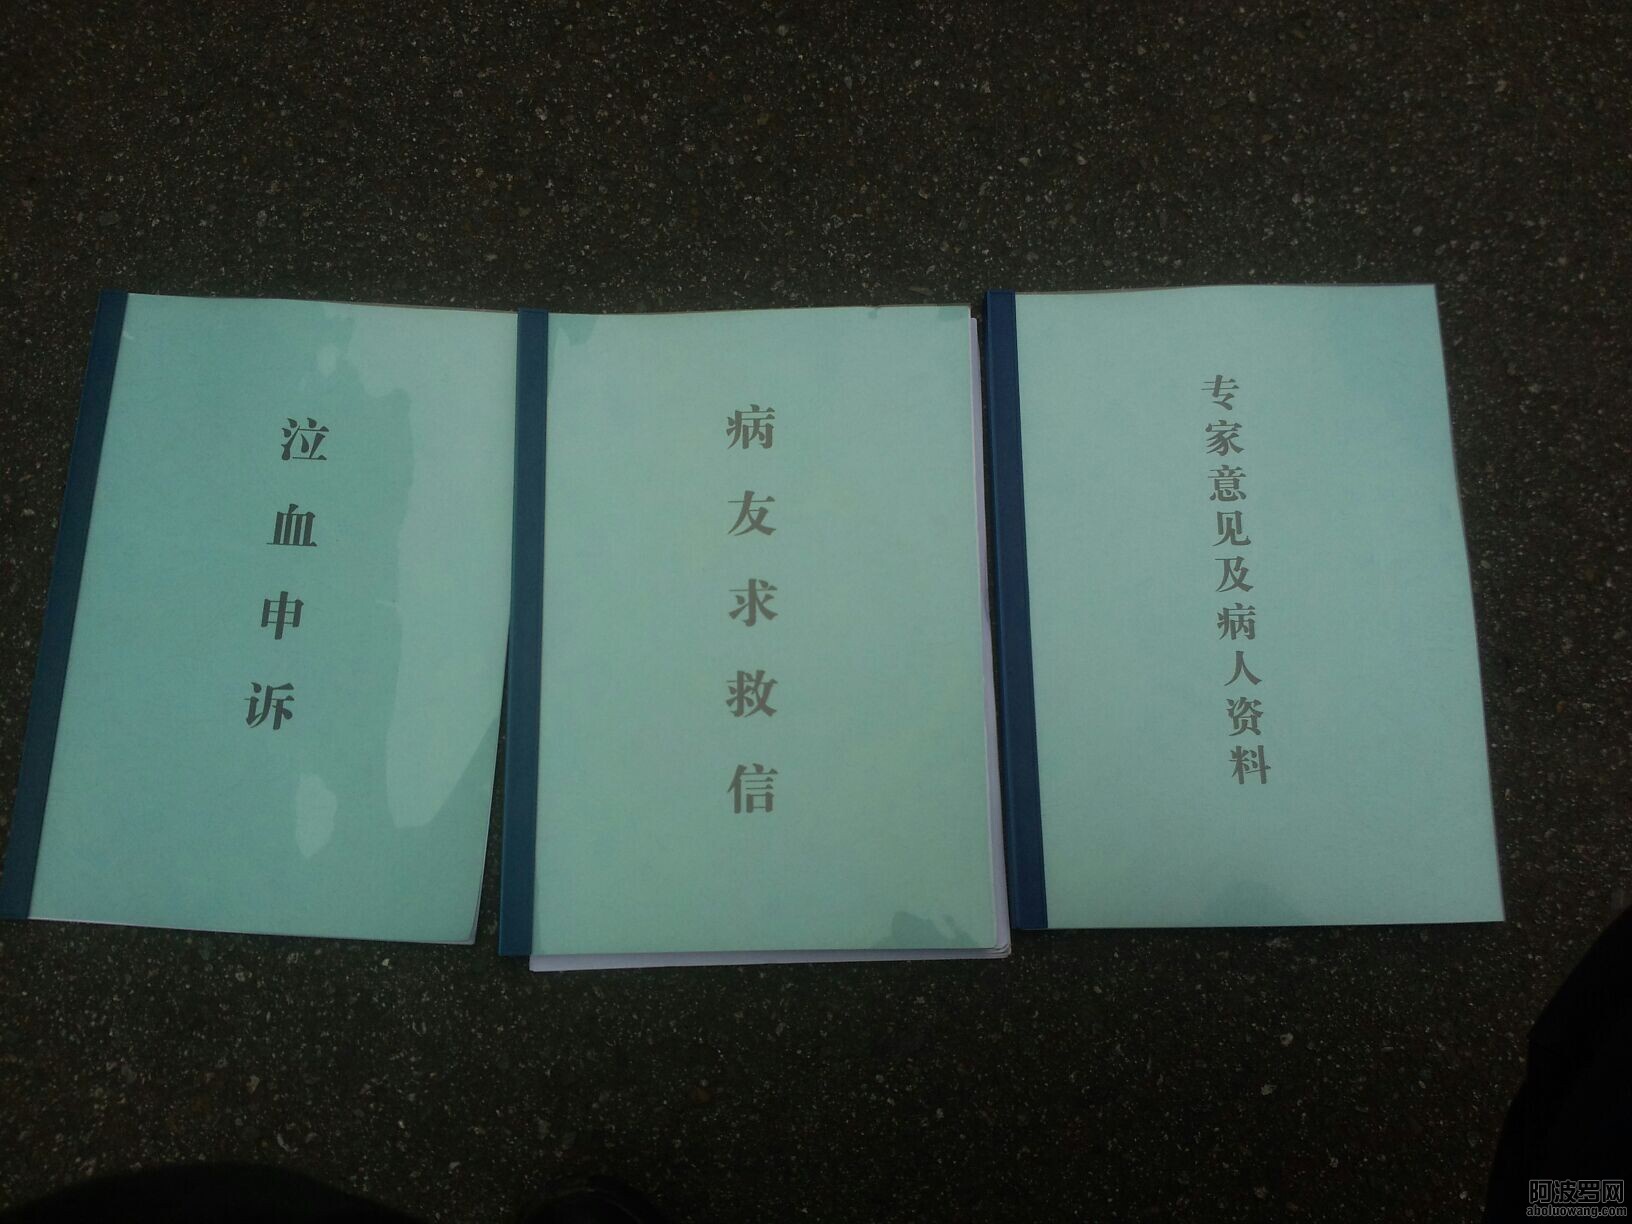 泣血申诉
病友求救信
专家意见及病人资料
阿波罗网
aboluowang.com